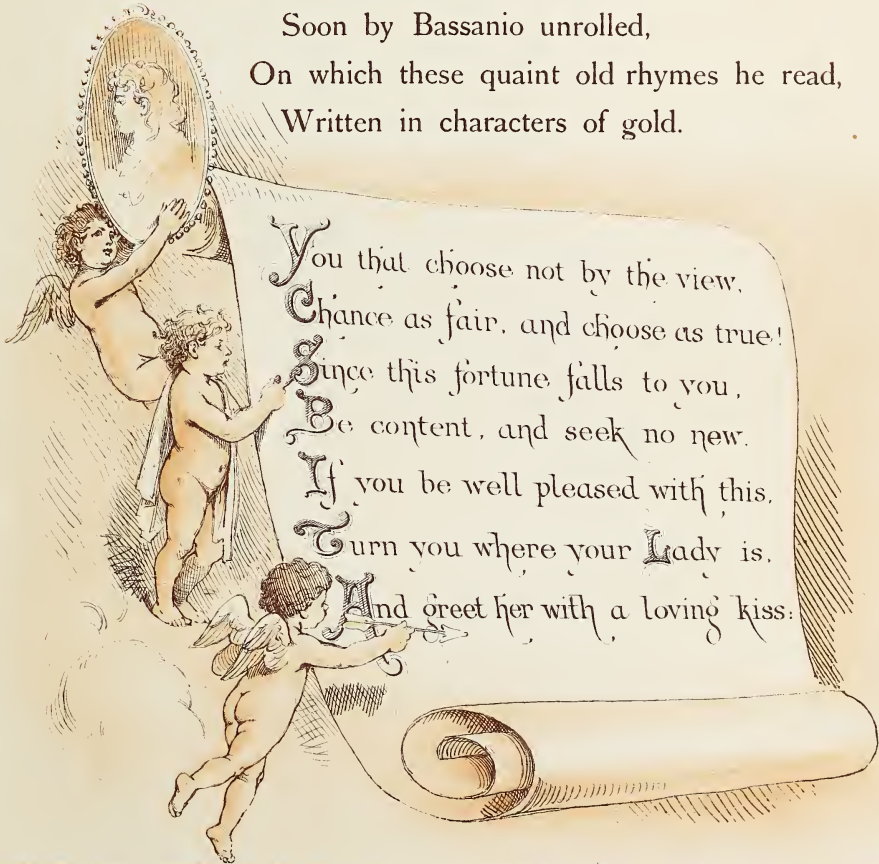 Soon by Bassanio unrolled,
On which these quaint old rhymes he read,
Written in characters of gold.
You that choose not by the view,
Chance as fair, and choose as true!
Since this fortune falls to you,
Be content, and seek no new.
If you be well pleased with this,
Turn you where your Lady is,
And greet her with a loving kiss: